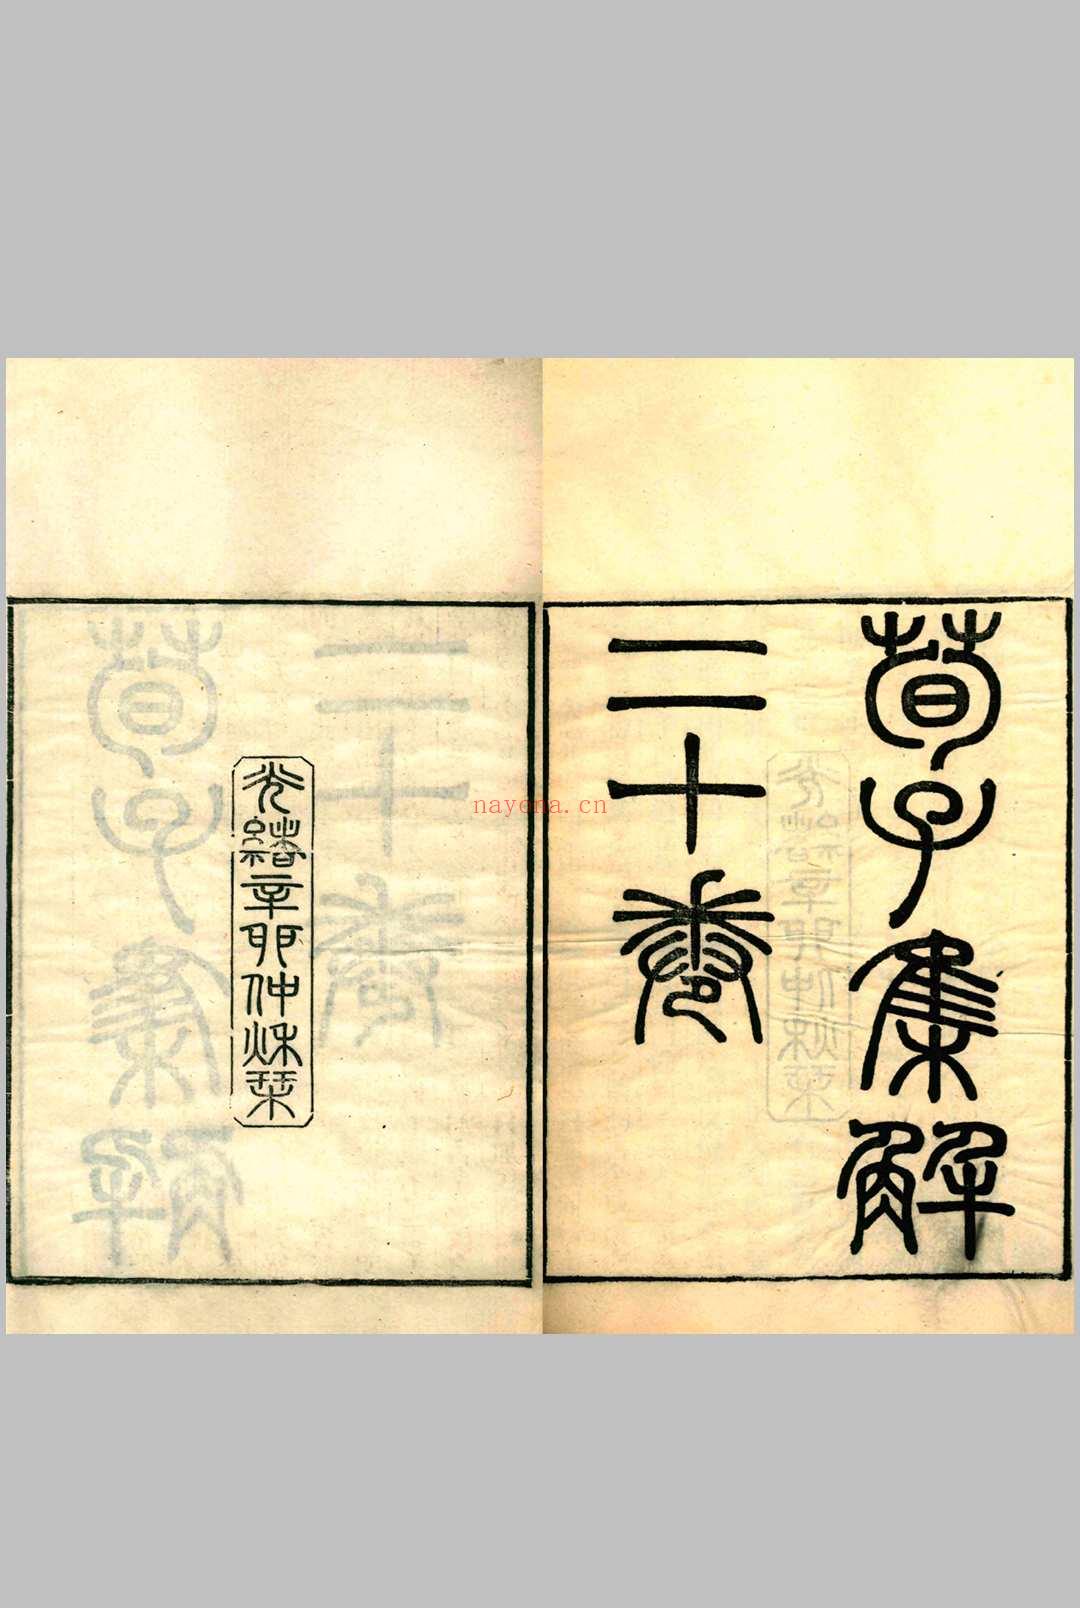 荀子集解
二十卷
光緒辛卯仲秌栞
nayona.cn